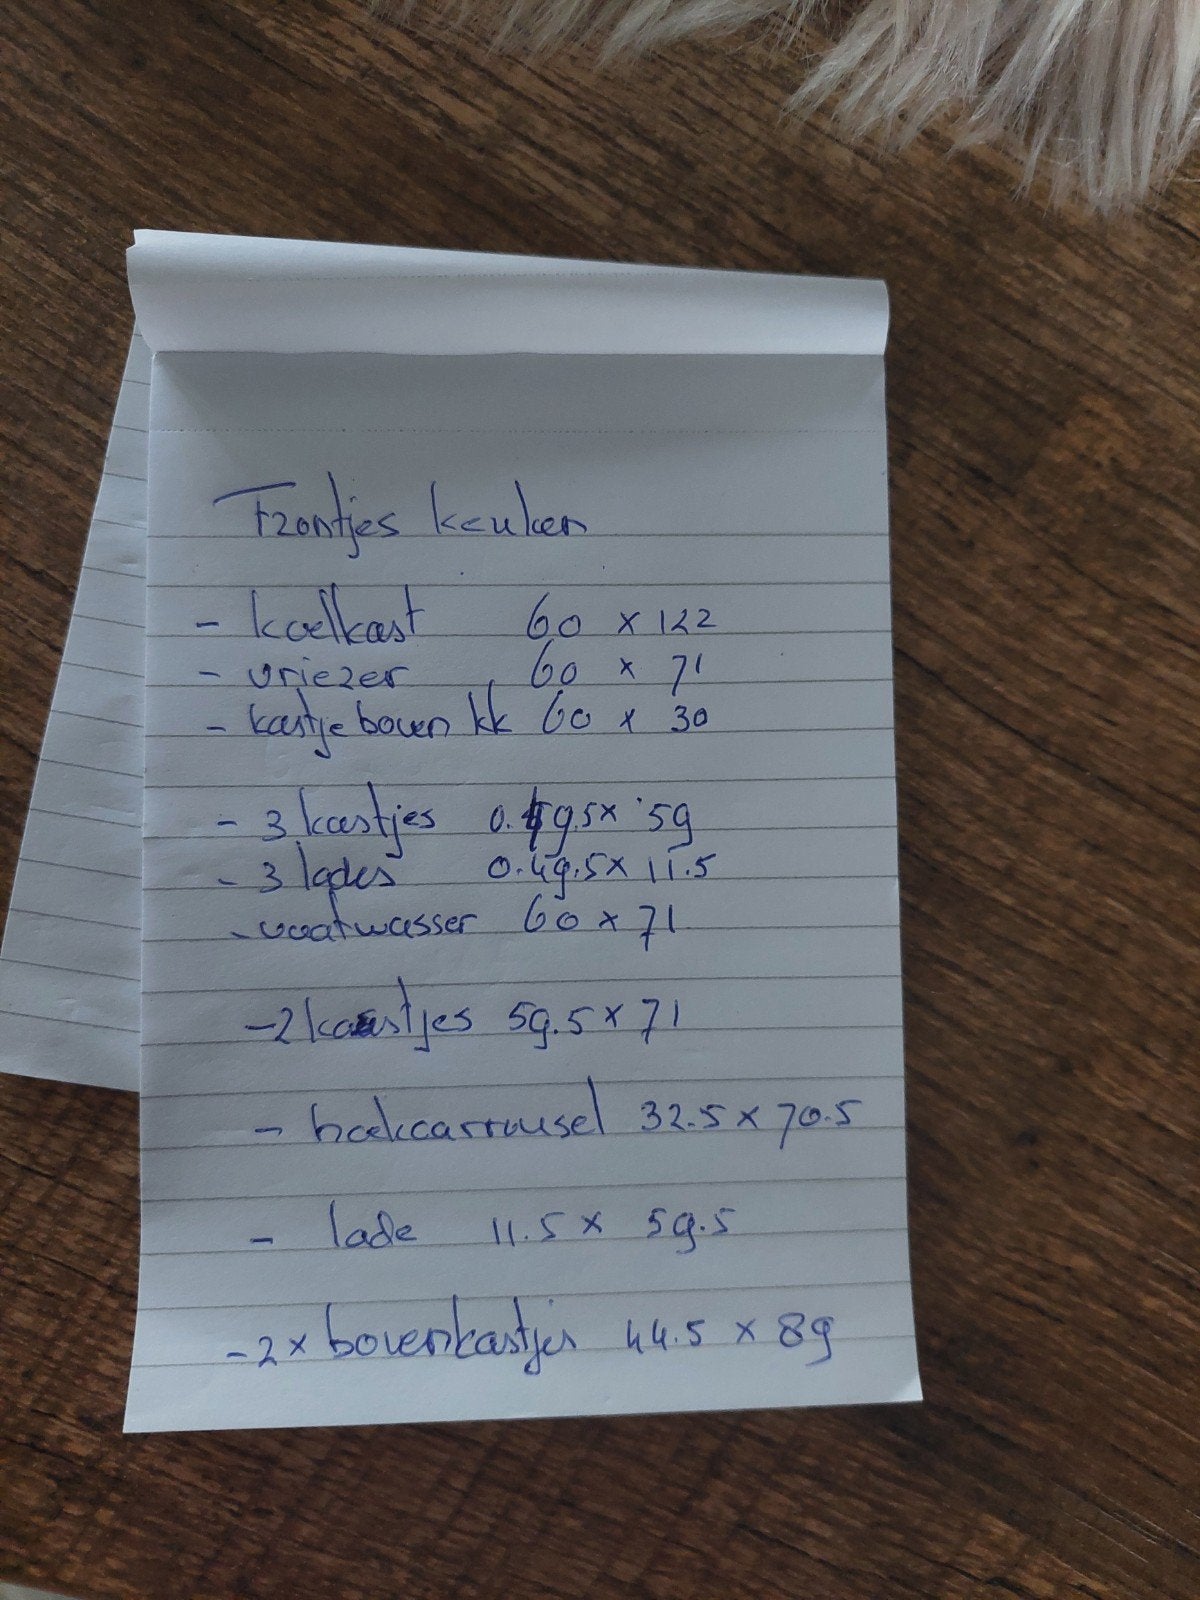 Frontjes keuken
- koelkast 60 x 122
- vriezer 60 x 71
- kastje boven kk 60 x 30
- 3 kastjes 0.49.5 x 59
- 3 lades 0.49.5 x 11.5
- vaatwasser 60 x 71
- 2 kastjes 59.5 x 71
- hoekcarrousel 32.5 x 70.5
- lade 11.5 x 59.5
- 2 x bovenkastjes 44.5 x 89